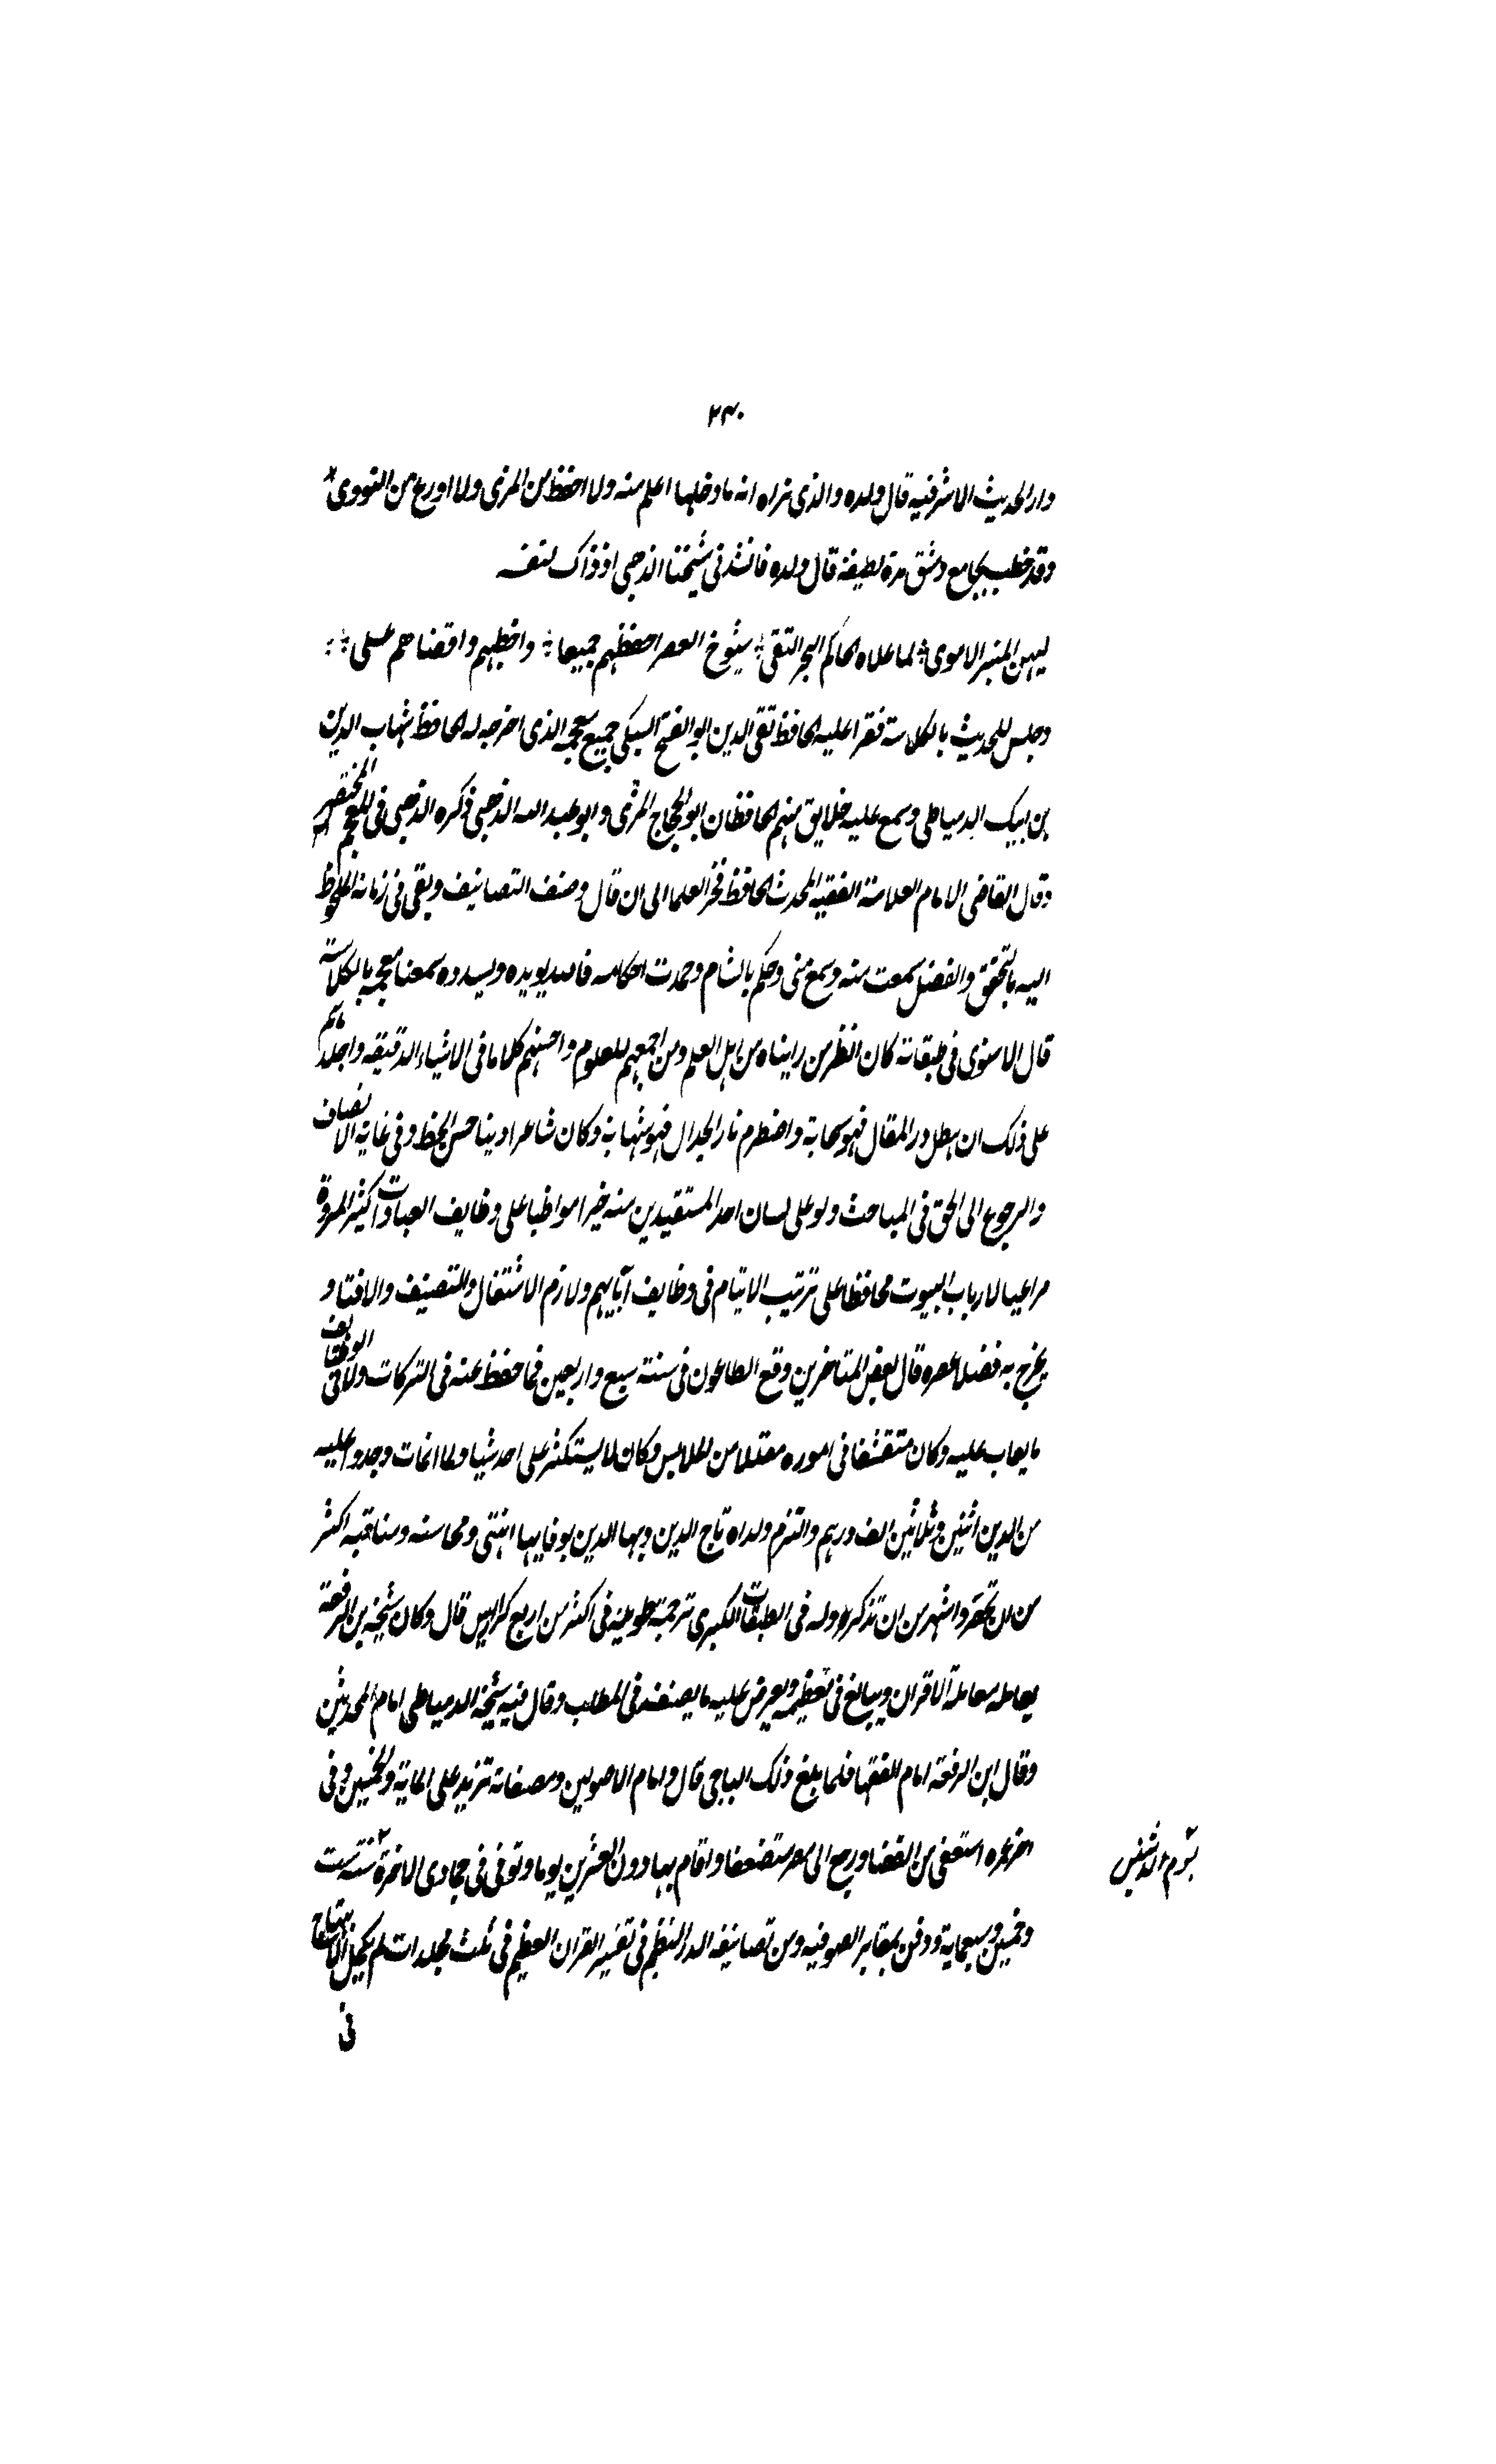 ٢٣٠
دار الحديث الاشرفيه قال ولده والذى نراه انه ما دخلها اعلم منه ولا احفظ من المزى ولا اورع من النووى
وقد خطب بجامع دمشق مدة لطيفة قال ولده فانشدنى شيخنا الذهبى اذ ذاك لنفسه
ليهن المنبر الاموى لما علاه الحاكم البحر التقى شيوخ العصر احفظهم جميعا واخطبهم واقضاهم على
وجلس للحديث بالكلاسة فقرا عليه الحافظ تقى الدين ابو الفتح السبكى جميع معجمه الذى اخرجه له الحافظ شهاب الدين
بن ايبك الدمياطى وسمع عليه خلايق منهم الحافظان ابو الحجاج المزى وابو عبد الله الذهبى ذكره الذهبى فى المعجم المختص
وقال القاضى الامام العلامة الفقيه المحدث الحافظ فخر العلما الى ان قال وصنف التصانيف وبقى فى زمانه الملحوظ
اليه بالتحقق والفضل سمعت منه وسمع منى وحكم بالشام وحمدت احكامه فالله يويده ويسدده سمعنا معجمه بالكلاسة
قال الاسنوى فى طبقاته كان انظر من رايناه من اهل العلم ومن اجمعهم للعلوم واحسنهم كلاما فى الاشياء الدقيقه واجلدهم
على ذلك ان هطل در المقال فهو سحابة واضطرم نار الجدال فهو شهابة وكان شاعرا دينا حسن الخط وفى غاية الانصاف
والرجوع الى الحق فى المباحث ولو على لسان احد المستفيدين منه خيرا مواظبا على وظايف العبادات كثير المروة
مراعيا لارباب البيوت محافظا على ترتيب الايتام فى وظايف آبايهم ولازم الاشتغال والتصنيف والافتا و
يخرج به فضلا عصره قال بعض المتاخرين وقع الطاعون فى سنة سبع واربعين فما حفظ عنه فى التركات ولا فى الوظايف
ما يعاب عليه وكان متقشفا فى اموره مقتلا من الملابس وكان لا يستكثر على احد شيا ولما مات وجدوا عليه
من الدين اثنين وثلاثين الف درهم والتزم ولداه تاج الدين وبها الدين بوفايها انتهى ومحاسنه ومناقبه اكثر
من ان تحصر واشهر من ان تذكر وله فى الطبقات الكبرى ترجمة طويلة فى اكثر من اربع كراريس قال وكان شيخه بن الرفعة
يعامله معاملة الاقران ويبالغ فى تعظيمه ويعرض عليه ما يصنفه فى المطلب وقال فيه شيخه الدمياطى امام المحدثين
وقال ابن الرفعة امام الفقها فلما بلغ ذلك الباجى قال وامام الاصولين ومصنفاته تزيد على الماية والخمسين وفى
اخر عمره استعفى من القضا ورجع الى مصر مستضعفا واقام بها دون العشرين يوما وتوفى فى جمادى الاخرة سنة ست
وخمسين وسبعماية ودفن بمقابر الصوفيه ومن تصانيفه الدر النظيم فى تفسير القران العظيم فى ثلث مجلدات لم يكمل الابتهاج
فى